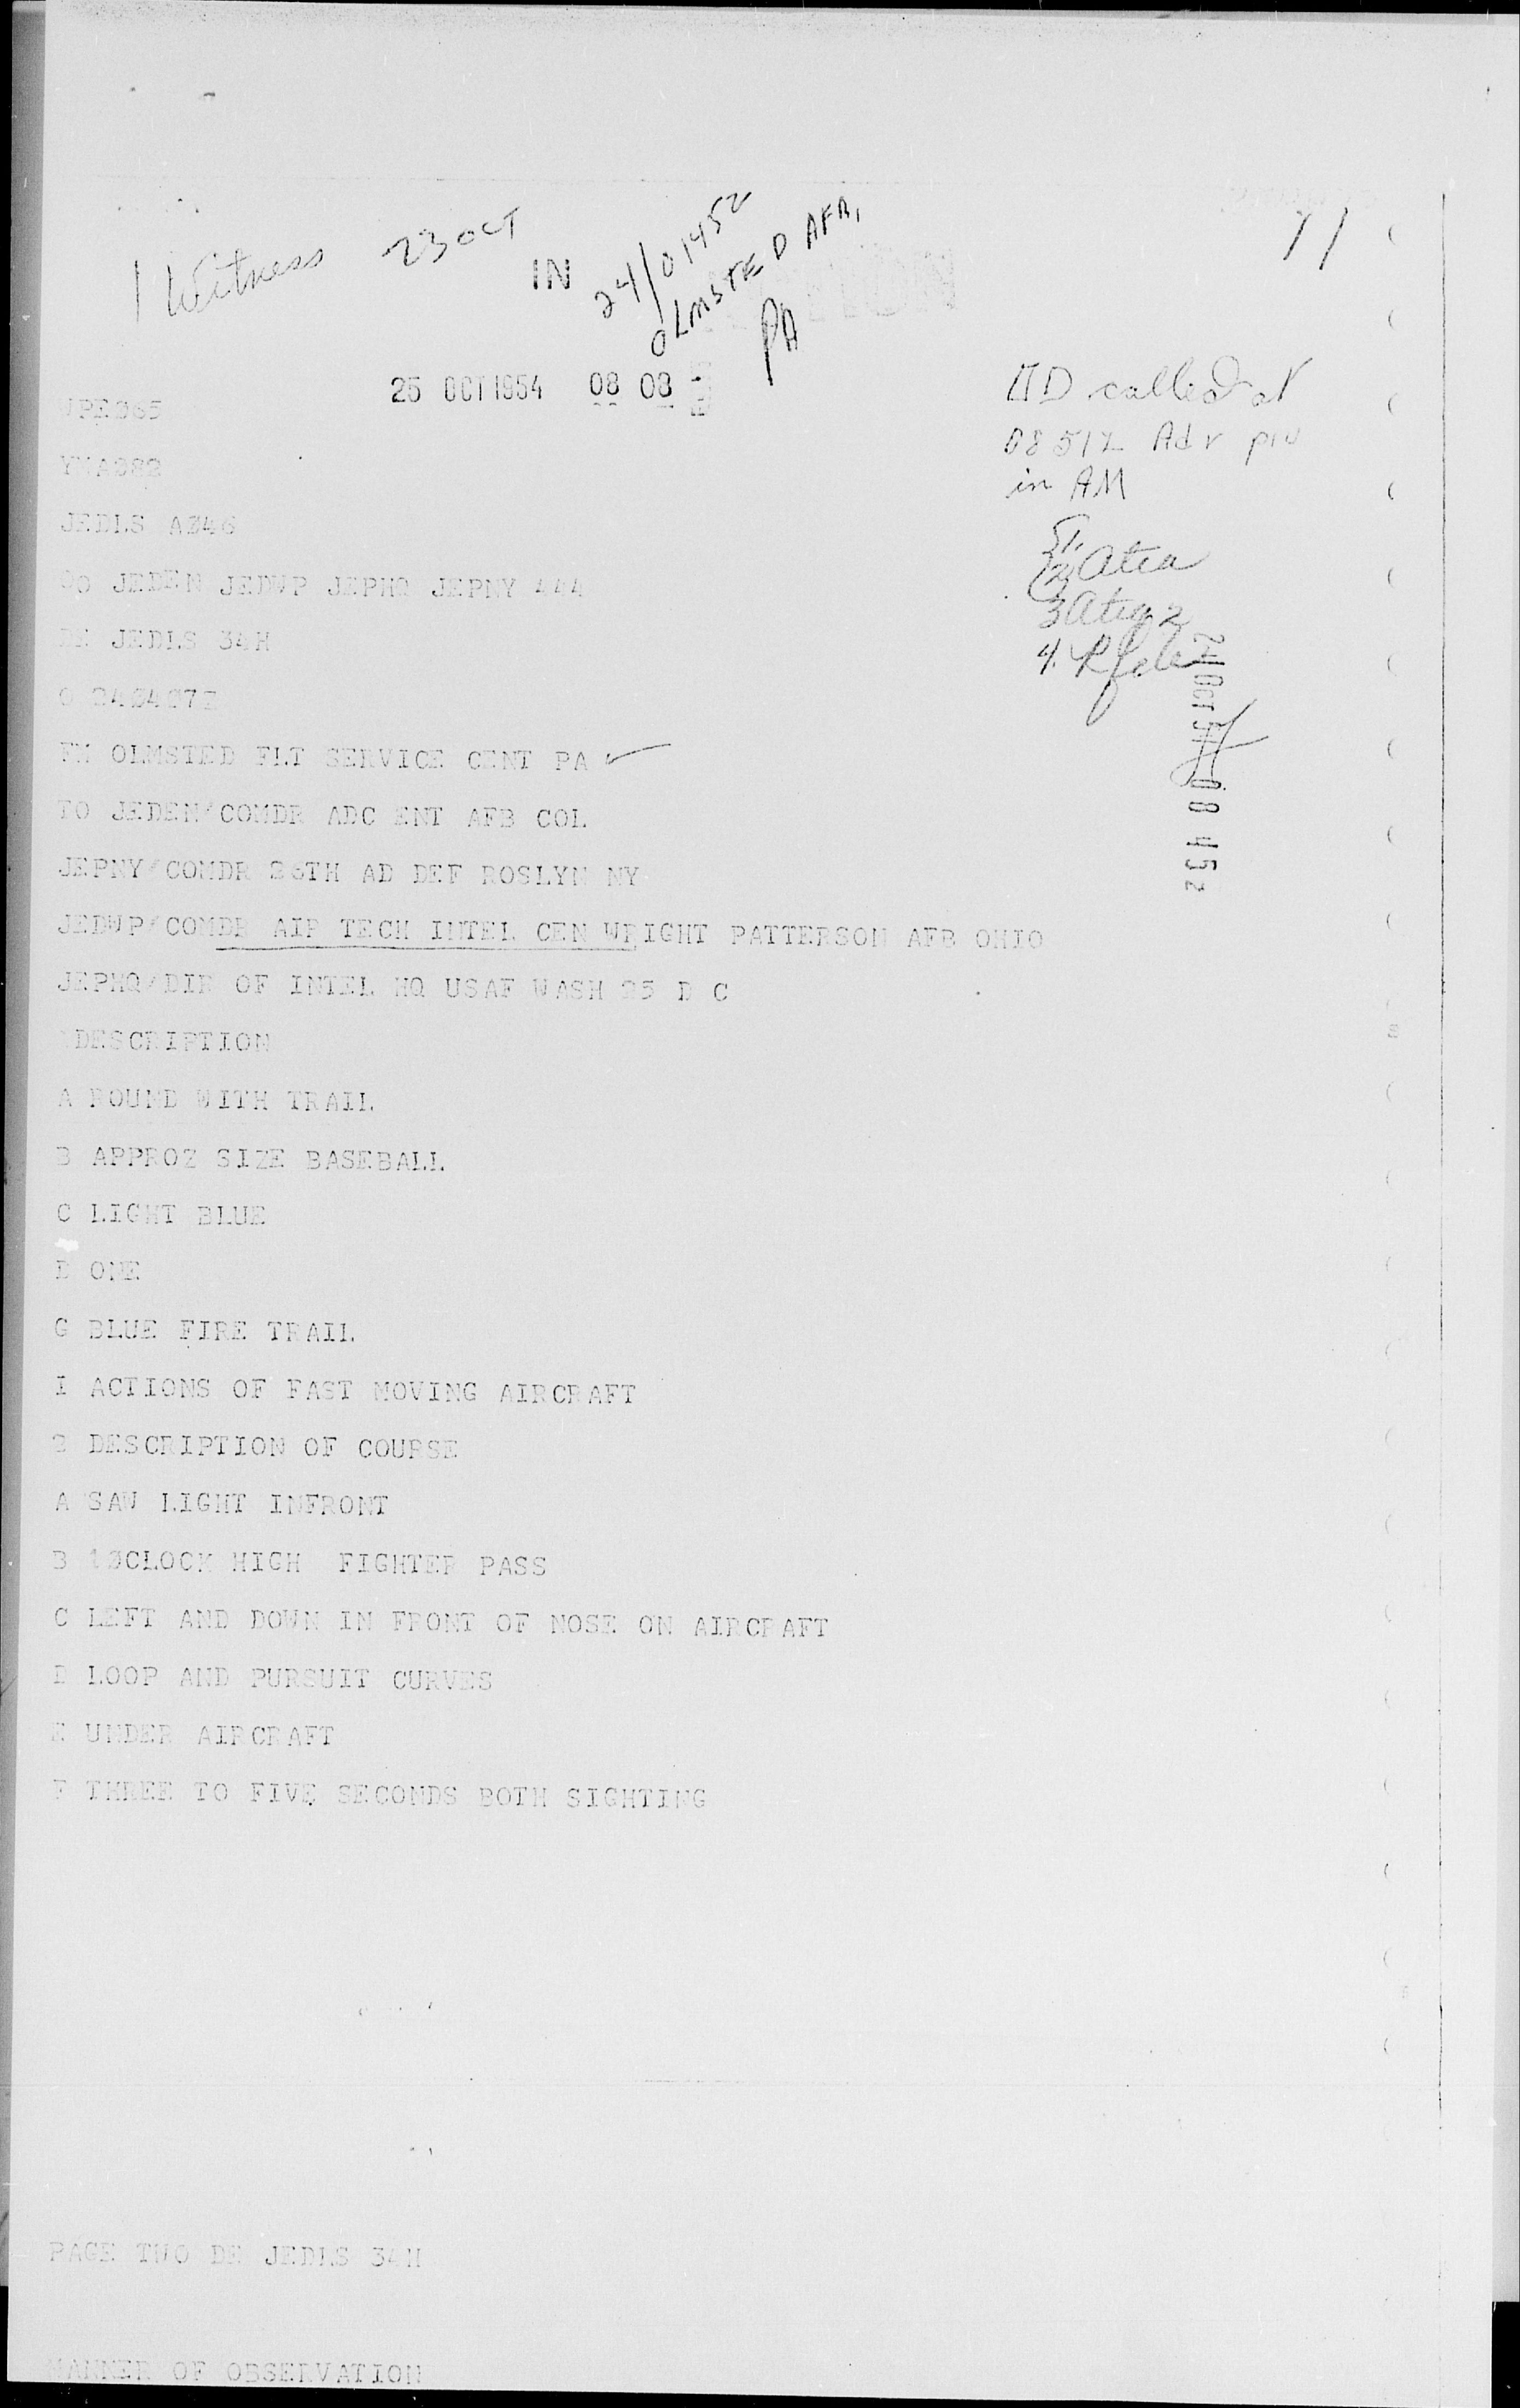 1 Witness 23 OCT
IN 24/0145Z
OLMSTED AFB,
PA
25 OCT 1954 08 08
DD called at
0851Z Adv
in AM
WPE065
JEDLS
2 Atia
4.
24 OCT 54 08 45z
JEDEN JEDWP JEPHQ JEPNY 444
DE JEDLS 34H
FM OLMSTED FLT SERVICE CENT PA
TO JEDEN/COMDR ADC ENT AFB COL
JEPNY/COMDR 26TH AD DEF ROSLYN NY
JEDWP/COMDR AIR TECH INTEL CEN WRIGHT PATTERSON AFB OHIO
JEPHQ/DIR OF INTEL HQ USAF WASH 25 D C
DESCRIPTION
A ROUND WITH TRAIL
B APPROZ SIZE BASEBALL
C LIGHT BLUE
D ONE
G BLUE FIRE TRAIL
I ACTIONS OF FAST MOVING AIRCRAFT
2 DESCRIPTION OF COURSE
A SAW LIGHT INFRONT
B HIGH FIGHTER PASS
C LEFT AND DOWN IN FRONT OF NOSE ON AIRCRAFT
D LOOP AND PURSUIT CURVES
E UNDER AIRCRAFT
F THREE TO FIVE SECONDS BOTH SIGHTING
PAGE TWO DE JEDLS 34H
MANNER OF OBSERVATION